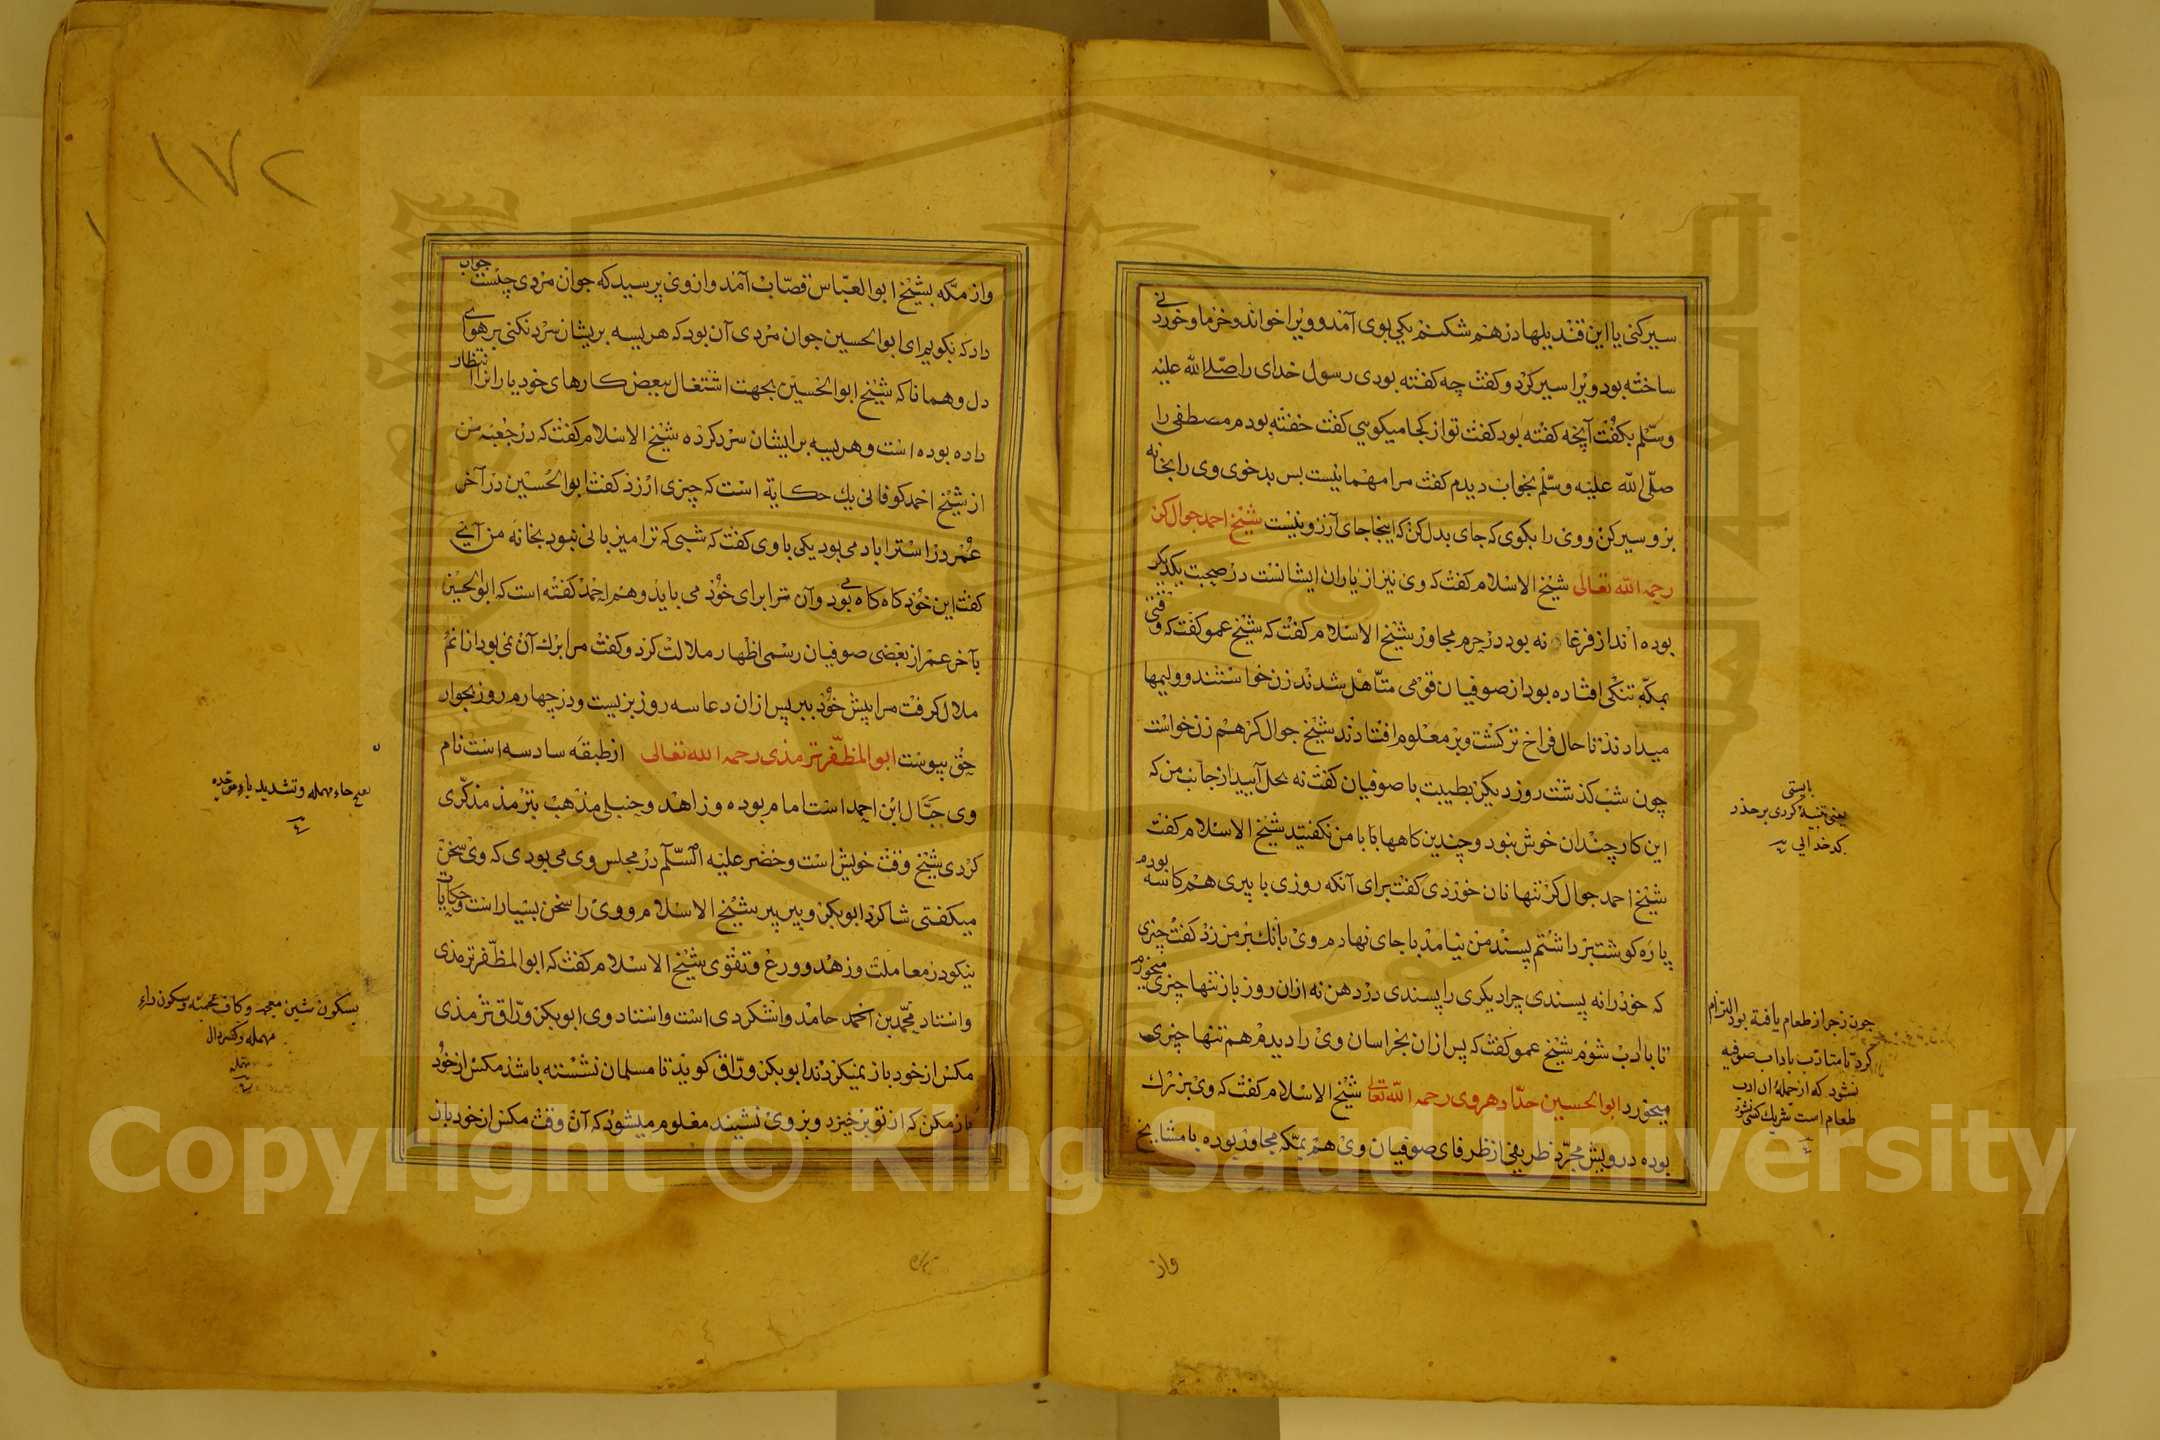 سیر کنی یا این قندیلها در هم شکنم یکی بوی آمد و ویرا خواند و خرما و خوردنی
ساخته بود ویرا سیر کرد و کفت چه کفته بودی رسول خدای را صلی الله علیه
وسلم بکفت آنچه کفته بود کفت تو از کجا میکویی کفت خفته بودم مصطفی را
صلی الله علیه وسلم بخواب دیدم کفت مرا مهمانیست بس بدخوی وی را بخانه
بر و سیر کن و وی را بکوی که جای بدل کن که اینجا جای آرزو نیست شیخ احمد جوال کر
رحمه الله تعالی شیخ الاسلام کفت که وی نیز از یاران ایشانست در صحبت یکدیکر
بوده اند از فرغانه بود در حرم مجاور شیخ الاسلام کفت که شیخ عمو کفت که وقتی
بمکه تنکی افتاده بود از صوفیان قومی متاهل شدند زن خواستند و ولیمها
میدادند تا حال فراخ تر کشت و بر معلوم افتادند شیخ جوال کر هم زن خواست
چون شب کذشت روز دیکر بطیبت با صوفیان کفت نه بحل آیید از جانب من که
این کار چندان خوش نبود و چندین کاهها با با من نکفتید شیخ الاسلام کفت
شیخ احمد جوال کر تنها نان خوردی کفت برای آنکه روزی با پیری هم کاسه بودم
پاره کوشت بر داشتم پسند من نیامد با جای نهادم وی بانک بر من زد کفت چیزی
که خود را نه پسندی چرا دیکری را پسندی در دهن نه ازان روز باز تنها چیزی میخورم
تا با ادب شوم شیخ عمو کفت که پس ازان بخراسان وی را دیدم هم تنها چیزی
میخورد ابوالحسین حداد هروی رحمه الله تعالی شیخ الاسلام کفت که وی بزرک
بوده درویش مجرد ظریفی از ظرفای صوفیان وی هم بمکه مجاور بوده با مشایخ
واز
بایستی
یعنی تنبیه کردی بر حذر
کدخدایی
چون زجر از طعام یافته بود التزام
کرد تا متادب باداب صوفیه
نشود که از جمله آن ادب
طعام است شریک کسی نشود
۱۷۲
واز مکه بشیخ ابوالعباس قصاب آمد و از وی پرسید که جوان مردی چیست جواب
داد که بکویم ای ابوالحسین جوان مردی آن بود که هریسه بریشان سرد نکنی بر هوای
دل و همانا که شیخ ابوالحسین بجهت اشتغال ببعض کارهای خود یارانرا انتظار
داده بوده است و هریسه بر ایشان سرد کرده شیخ الاسلام کفت که در جعبه من
از شیخ احمد کوفانی یک حکایة است که چیزی ارزد کفت ابوالحسین در آخر
عمر در استراباد می بود یکی با وی کفت که شبی که ترا میزبانی نبود بخانه من آی
کفت این خود کاه کاه می بود و آن ترا برای خود می باید و هم احمد کفته است که ابوالحسین
بآخر عمر از بعضی صوفیان رسمی اظهار ملالت کرد و کفت مرا برک آن نمی بود
ملال کرفت مرا پیش خود ببر پس ازان دعا سه روز بزیست و در چهارم روز بجوار
حق پیوست ابوالمظفر ترمذی رحمه الله تعالی از طبقه سادسه است نام
وی حبّال ابن احمد است امام بوده و زاهد و حنبلی مذهب بترمذ مذکری
کردی شیخ وقت خویش است و خضر علیه السلام در مجلس وی می بودی که وی سخن
میکفتی شاکرد ابوبکر و پیر پیر شیخ الاسلام و وی را سخن بسیار است و حکایات
نیکو در معاملت و زهد و ورع و تقوی شیخ الاسلام کفت که ابوالمظفر ترمذی
و استاد محمد بن احمد حامد واشکردی است و استاد وی ابوبکر وراق ترمذی
مکس از خود باز نمیکردند ابوبکر وراق کوید تا مسلمان نشسته باشد مکس از خود
باز مکن که از تو بر خیزد و بر وی نشیند معلوم میشود که آن وقت مکس از خود باز
بفتح حاء مهمله و تشدید باء موحده
بسکون شین معجمه و کاف عجمیه و سکون راء
مهمله و کسر دال
مهمله
Copyright © King Saud University